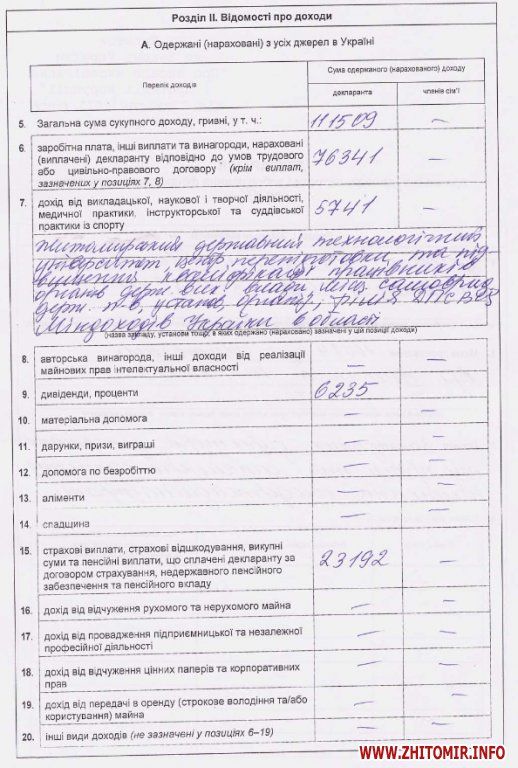 Розділ II. Відомості про доходи
А. Одержані (нараховані) з усіх джерел в Україні
Перелік доходів
Сума одержаного (нарахованого) доходу
декларанта
членів сім'ї
5. Загальна сума сукупного доходу, гривні, у т. ч.: 111509 —
6. заробітна плата, інші виплати та винагороди, нараховані
(виплачені) декларанту відповідно до умов трудового
або цивільно-правового договору (крім виплат,
зазначених у позиціях 7, 8) 76341 —
7. дохід від викладацької, наукової і творчої діяльності,
медичної практики, інструкторської та суддівської
практики із спорту 5741 —
Житомирский державний технологічний
університет, центр перепідготовки та під
вищення кваліфікації працівників
органів держ. влади,
держ.
Міндоходів України в області
(назва закладу, установи тощо, в яких одержано (нараховано) зазначені у цій позиції доходи)
8. авторська винагорода, інші доходи від реалізації
майнових прав інтелектуальної власності — —
9. дивіденди, проценти 6235 —
10. матеріальна допомога — —
11. дарунки, призи, виграші — —
12. допомога по безробіттю — —
13. аліменти — —
14. спадщина — —
15. страхові виплати, страхові відшкодування, викупні
суми та пенсійні виплати, що сплачені декларанту за
договором страхування, недержавного пенсійного
забезпечення та пенсійного вкладу 23192 —
16. дохід від відчуження рухомого та нерухомого майна — —
17. дохід від провадження підприємницької та незалежної
професійної діяльності — —
18. дохід від відчуження цінних паперів та корпоративних
прав — —
19. дохід від передачі в оренду (строкове володіння та/або
користування) майна — —
20. інші види доходів (не зазначені у позиціях 6–19) — —
WWW.ZHITOMIR.INFO